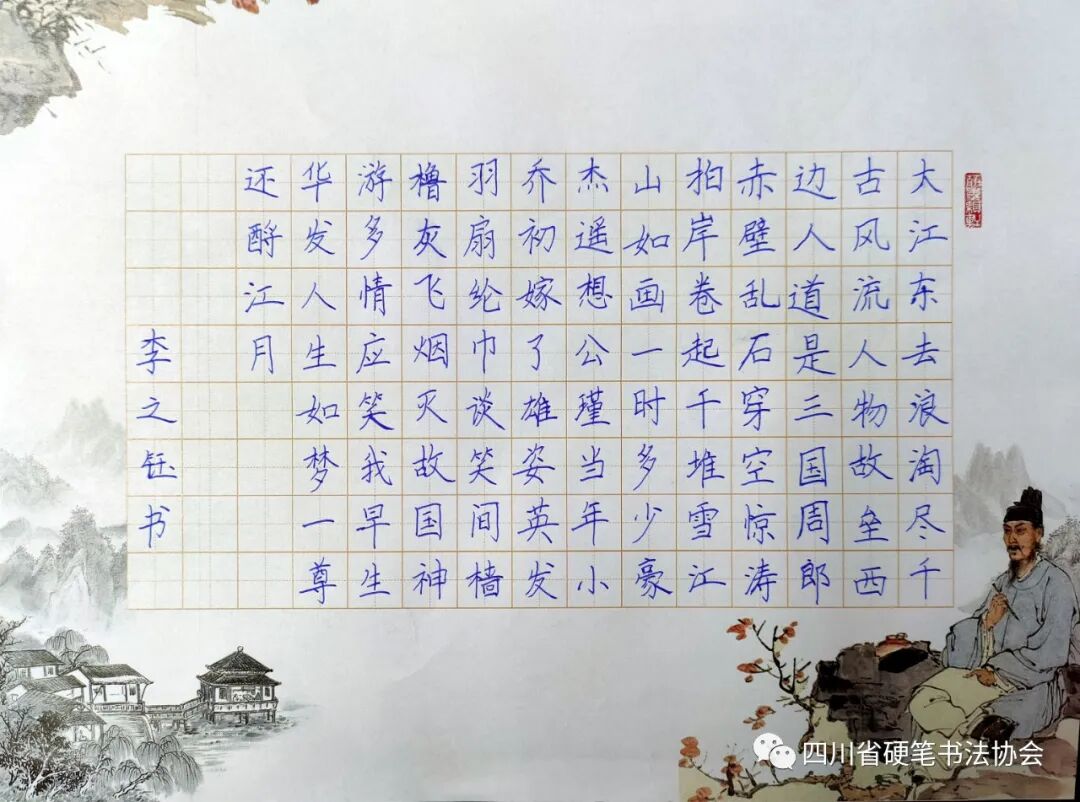 大江东去浪淘尽千
古风流人物故垒西
边人道是三国周郎
赤壁乱石穿空惊涛
拍岸卷起千堆雪江
山如画一时多少豪
杰遥想公瑾当年小
乔初嫁了雄姿英发
羽扇纶巾谈笑间樯
橹灰飞烟灭故国神
游多情应笑我早生
华发人生如梦一尊
还酹江月
李之钰书
四川省硬笔书法协会